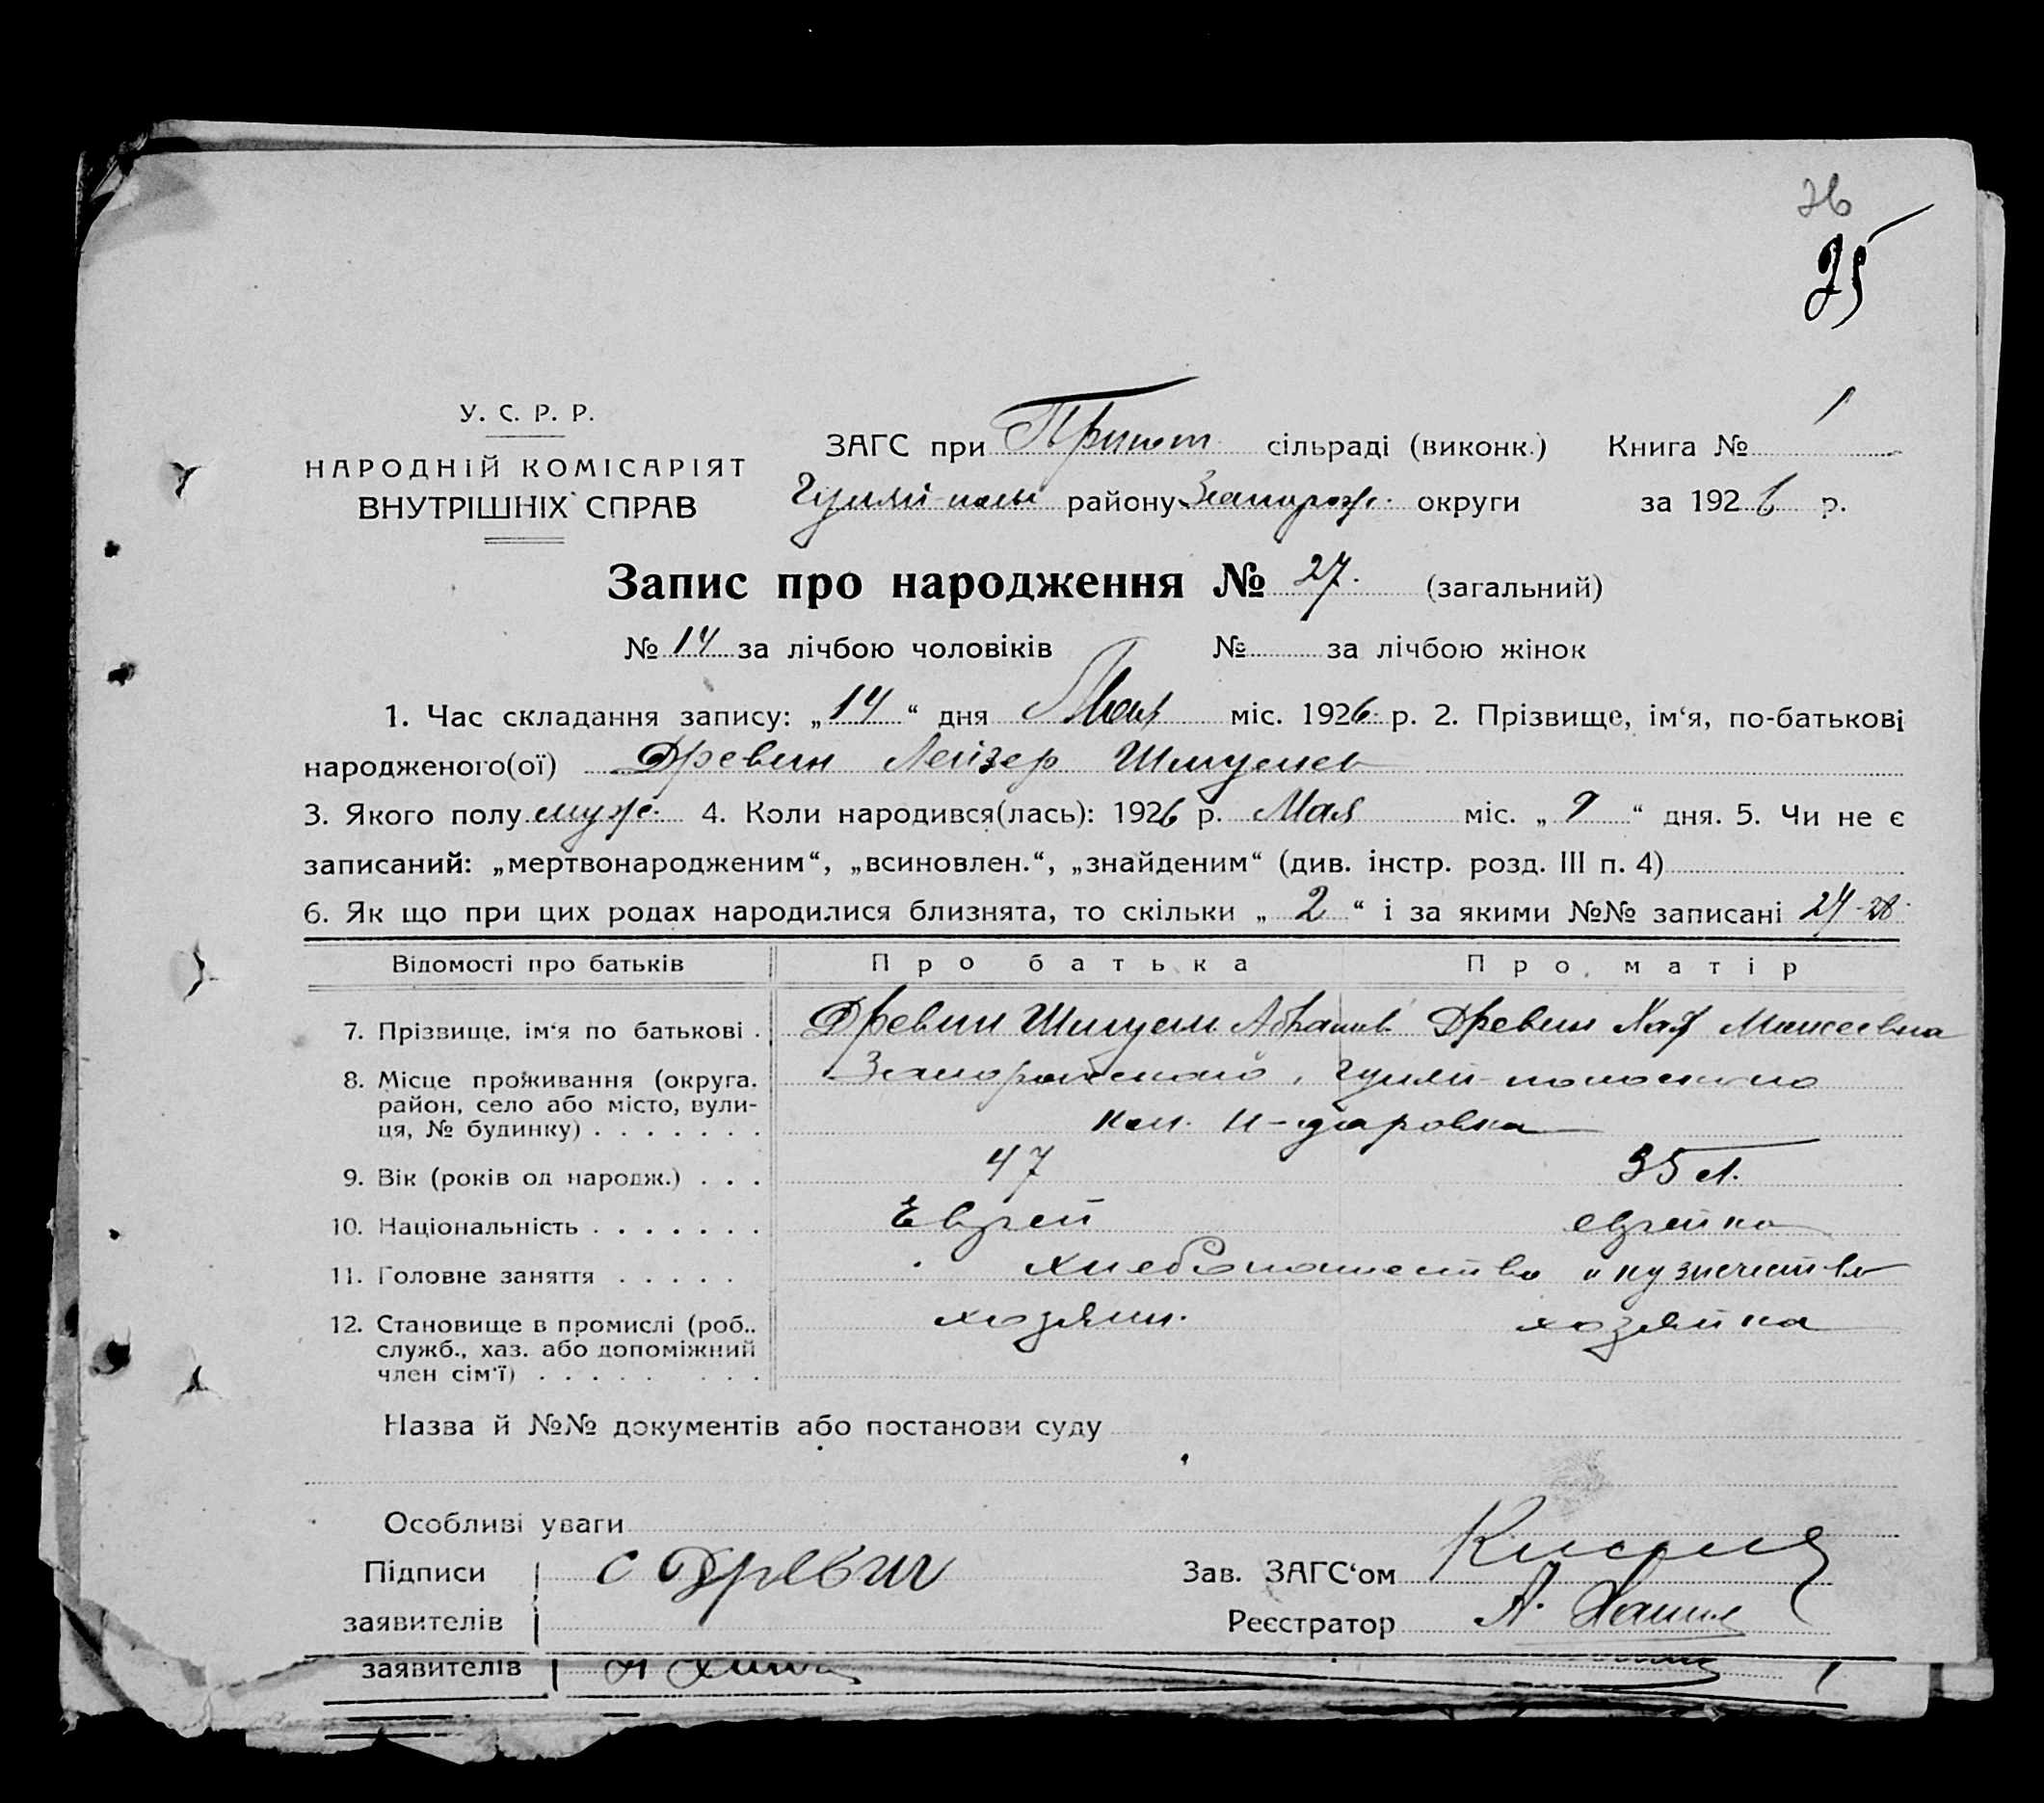 26
25
У. С. Р. Р.
НАРОДНІЙ КОМІСАРІЯТ
ВНУТРІШНІХ СПРАВ
ЗАГС при сільраді (виконк.) Книга № 1
Гуляй-поль району Запорож. округи за 1926 р.
Запис про народження № 27. (загальний)
№ 14 за лічбою чоловіків № за лічбою жінок
1. Час складання запису: „14“ дня Мая міс. 1926 р. 2. Прізвище, ім‘я, по-батькові
народженого(ої) Древин Лейзер Шмулев
3. Якого полу муж. 4. Коли народився(лась): 1926 р. Мая міс. „9“ дня. 5. Чи не є
записаний: „мертвонародженим“, „всиновлен.“, „знайденим“ (див. інстр. розд. III п. 4)
6. Як що при цих родах народилися близнята, то скільки „2“ і за якими №№ записані 27-28
Відомості про батьків Про батька Про матір
7. Прізвище, ім‘я по батькові . Древин Шмуель Абрамов Древин Хая Моисеевна
8. Місце проживання (округа, Запорожского, Гуляй-польского
район, село або місто, вули-
ця, № будинку) . . . . . . . кол. Н-даровка
9. Вік (років од народж.) . . . 47 35 л.
10. Національність . . . . . . . Еврей еврейка
11. Головне заняття . . . . . хлебопашество и кузнечество
12. Становище в промислі (роб.. хозяин. хозяйка
служб., хаз. або допоміжний
член сім‘ї) . . . . . . . .
Назва й №№ документів або постанови суду
Особливі уваги
Підписи С Древин Зав. ЗАГС‘ом
заявителів Реєстратор А.
заявителів